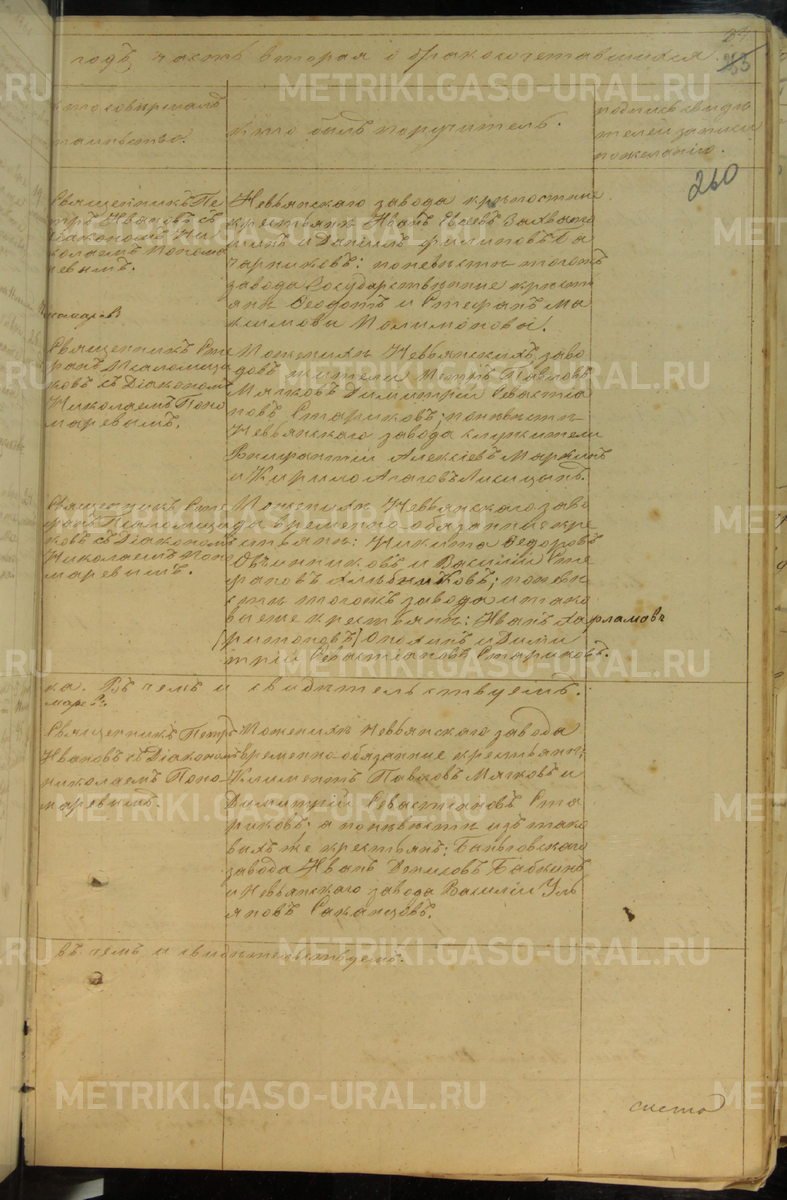 годъ часть вторая о бракосочетавшихся.
260
кто совершалъ
таинство.
кто былъ поручитель.
подпись свидѣ
телей записи
по желанію.
Священникъ Пе
тръ Ивановъ съ
Діакономъ Ни
колаемъ Понома
ревымъ.
Невьянскаго завода крѣпостные
крестьяне Иванъ Евсеевъ
и Даніилъ Филиповъ Ба
чарниковъ: по невѣсте тогожъ
завода Государственные кресть
яне Ѳеодотъ и Стефанъ Ма
ксимовы Полимоновы.
Священникъ Сте
фанъ Псаломщи
ковъ съ Діакономъ
Николаемъ Поно
маревымъ.
По женихѣ Невьянскихъ заво
довъ жители Павловъ
Мягковъ Димитрій Севастіа
новъ Стариковъ; по невѣсте
Невьянскаго завода служители
Алексіевъ
и Кирило Лисицынъ.
Священникъ Сте
фанъ Псаломщи
ковъ съ Діакономъ
Николаемъ Поно
маревымъ.
По женихѣ Невьянскаго заво
да временно обязанные кре
стьяне: Никита Ѳедоровъ
Овчинниковъ и Василій Сте
фановъ Хлѣбниковъ; по невѣ
сте тогожъ завода и тако
выеже крестьяне: Иванъ Харламовъ
и Дими
трій Севастіановъ Стариковъ.
ка. Въ чемъ и свидѣтельствуемъ.
Священникъ Петръ
Ивановъ съ Діакономъ
Николаемъ Поно
маревымъ.
По женихѣ Невьянскаго завода
временно-обязанные крестьяне;
Климентъ Павловъ Мягковъ и
Димитрій Севастіановъ Ста
риковъ: а по невѣсте изъ тако
выхъ же крестьянъ; Быньговскаго
завода Иванъ Денисовъ Бабкинъ
и Невьянскаго завода Василій Уль
яновъ Саканцовъ.
въ чемъ и свидѣтельствуемъ.
METRIKI.GASO-URAL.RU